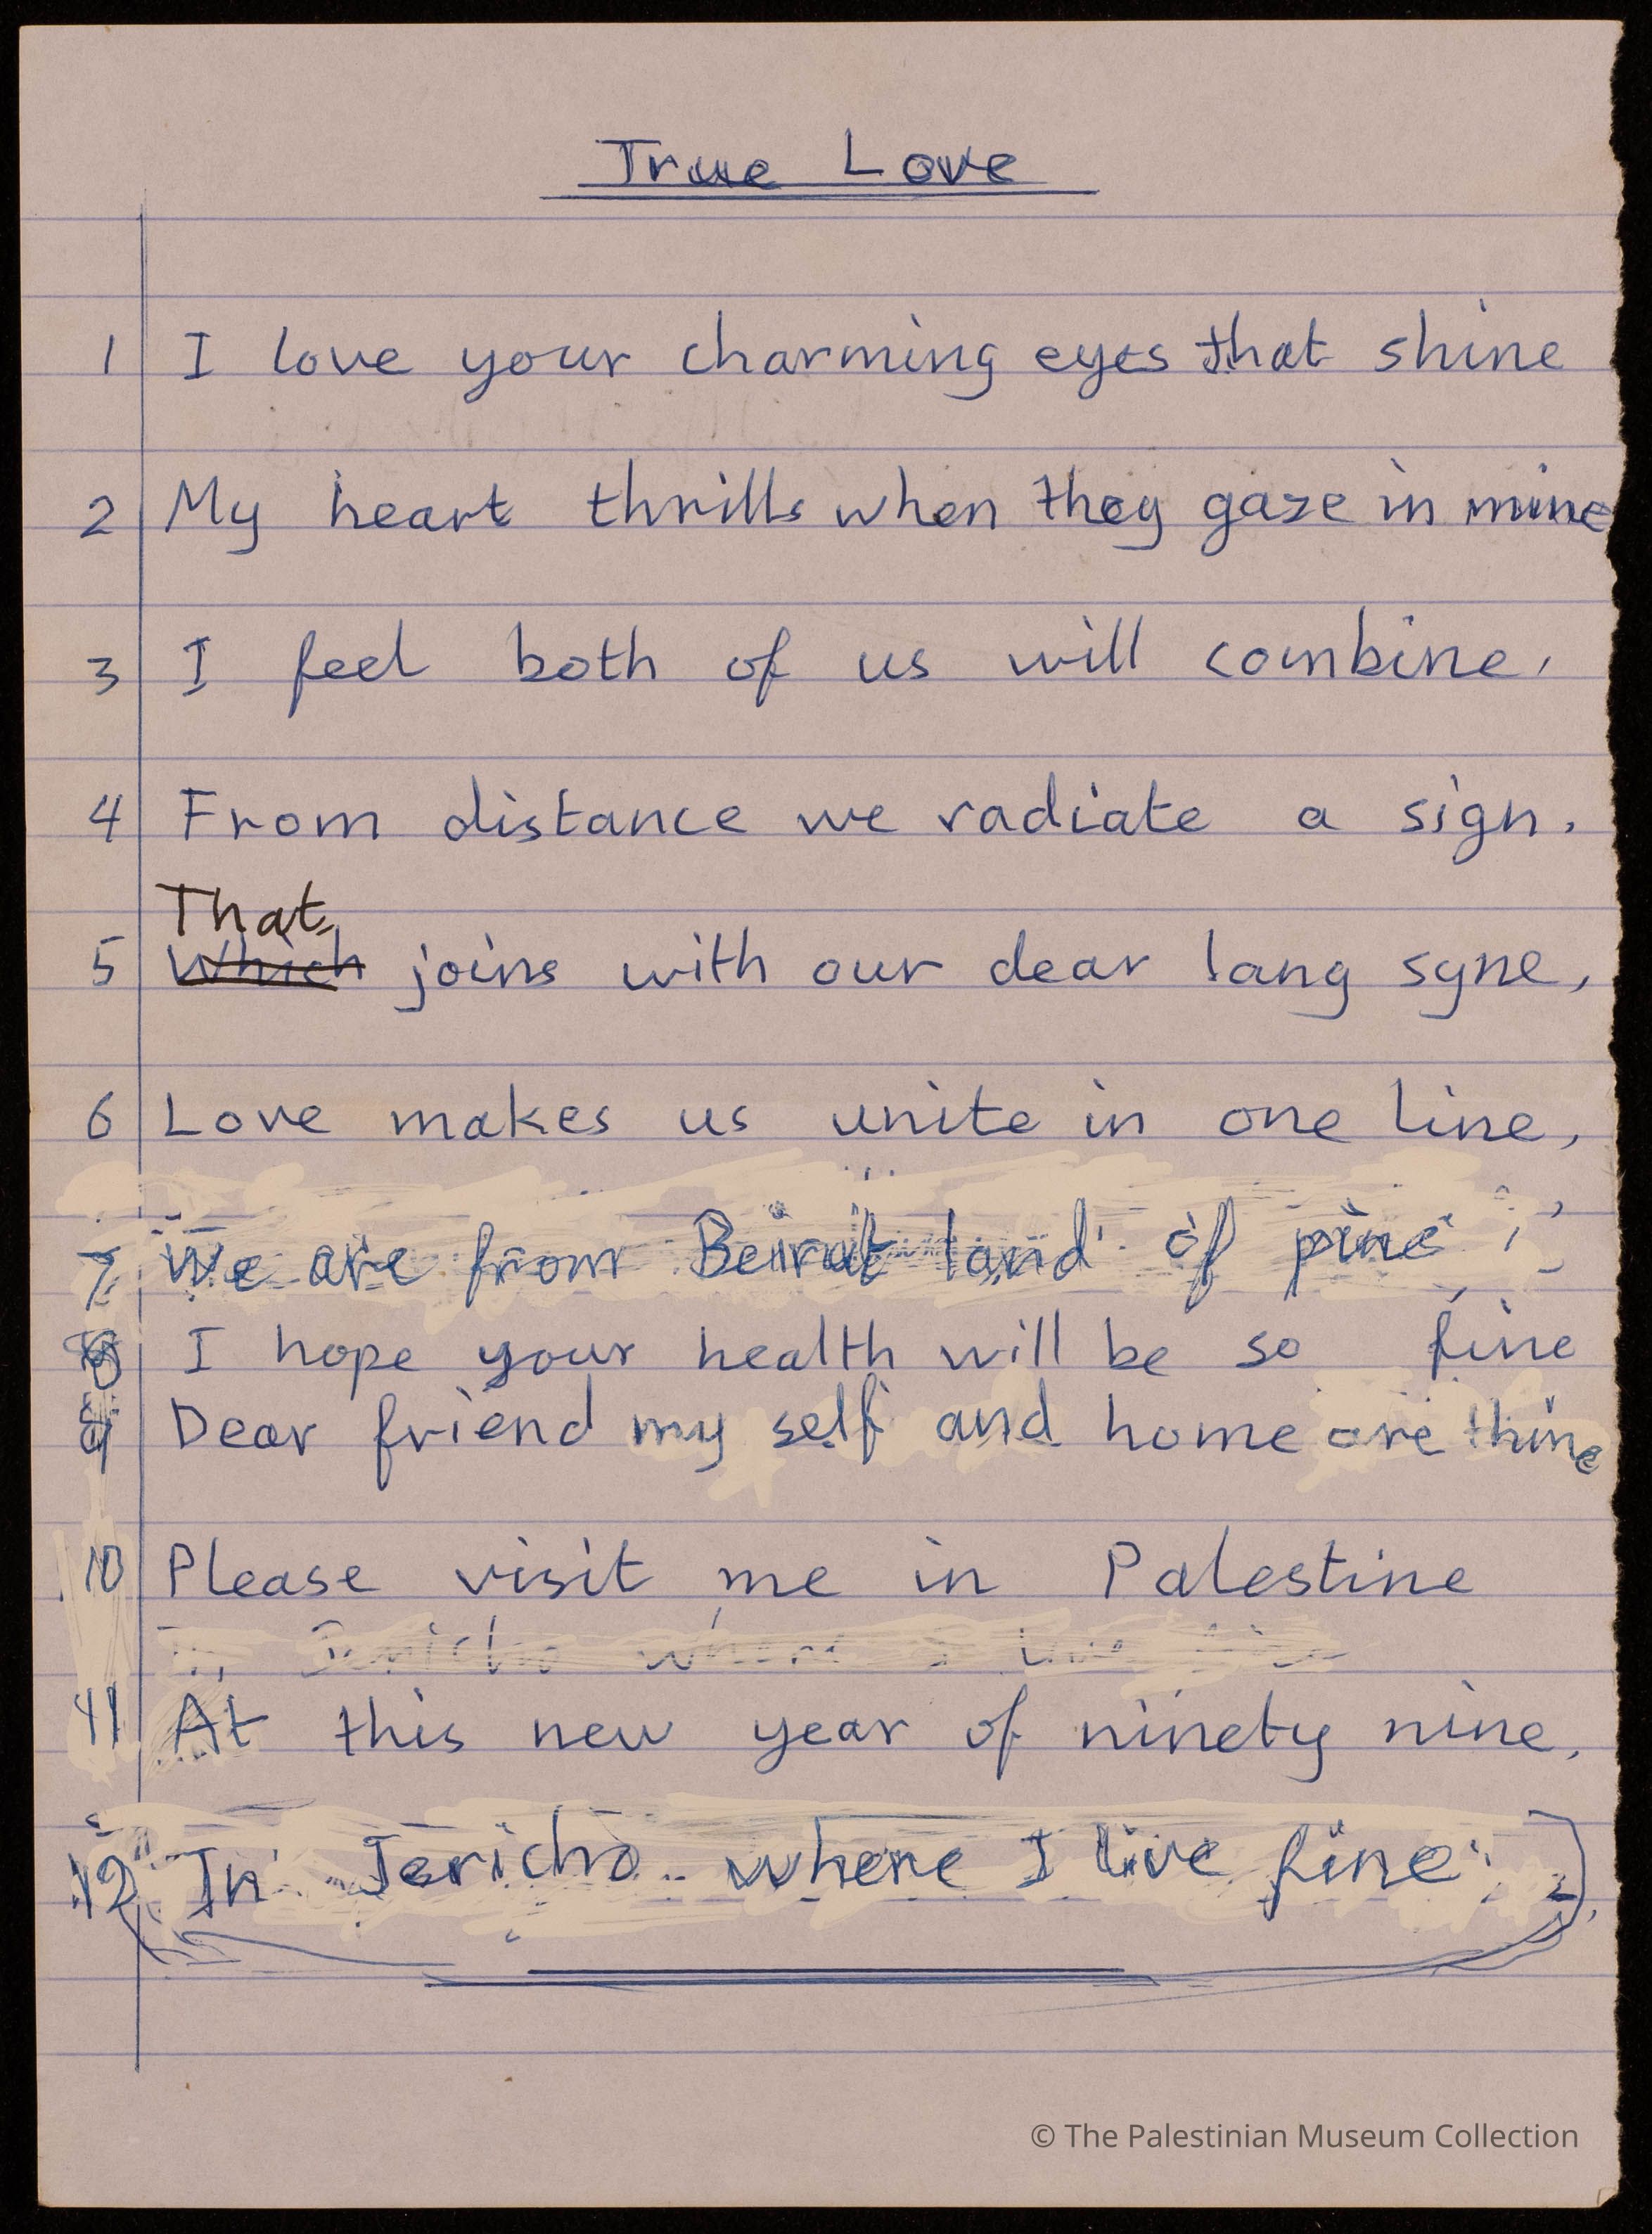 True Love
1 I love your charming eyes that shine
2 My heart thrills when they gaze in mine
3 I feel both of us will combine.
4 From distance we radiate a sign.
That
5 Which joins with our dear lang syne,
6 Love makes us unite in one line,
7 We are from Beirut land of pine
8 I hope your health will be so fine
9 Dear friend my self and home are thine
10 Please visit me in Palestine
In Jericho where I live fine
11 At this new year of ninety nine.
12 In Jericho where I live fine
© The Palestinian Museum Collection